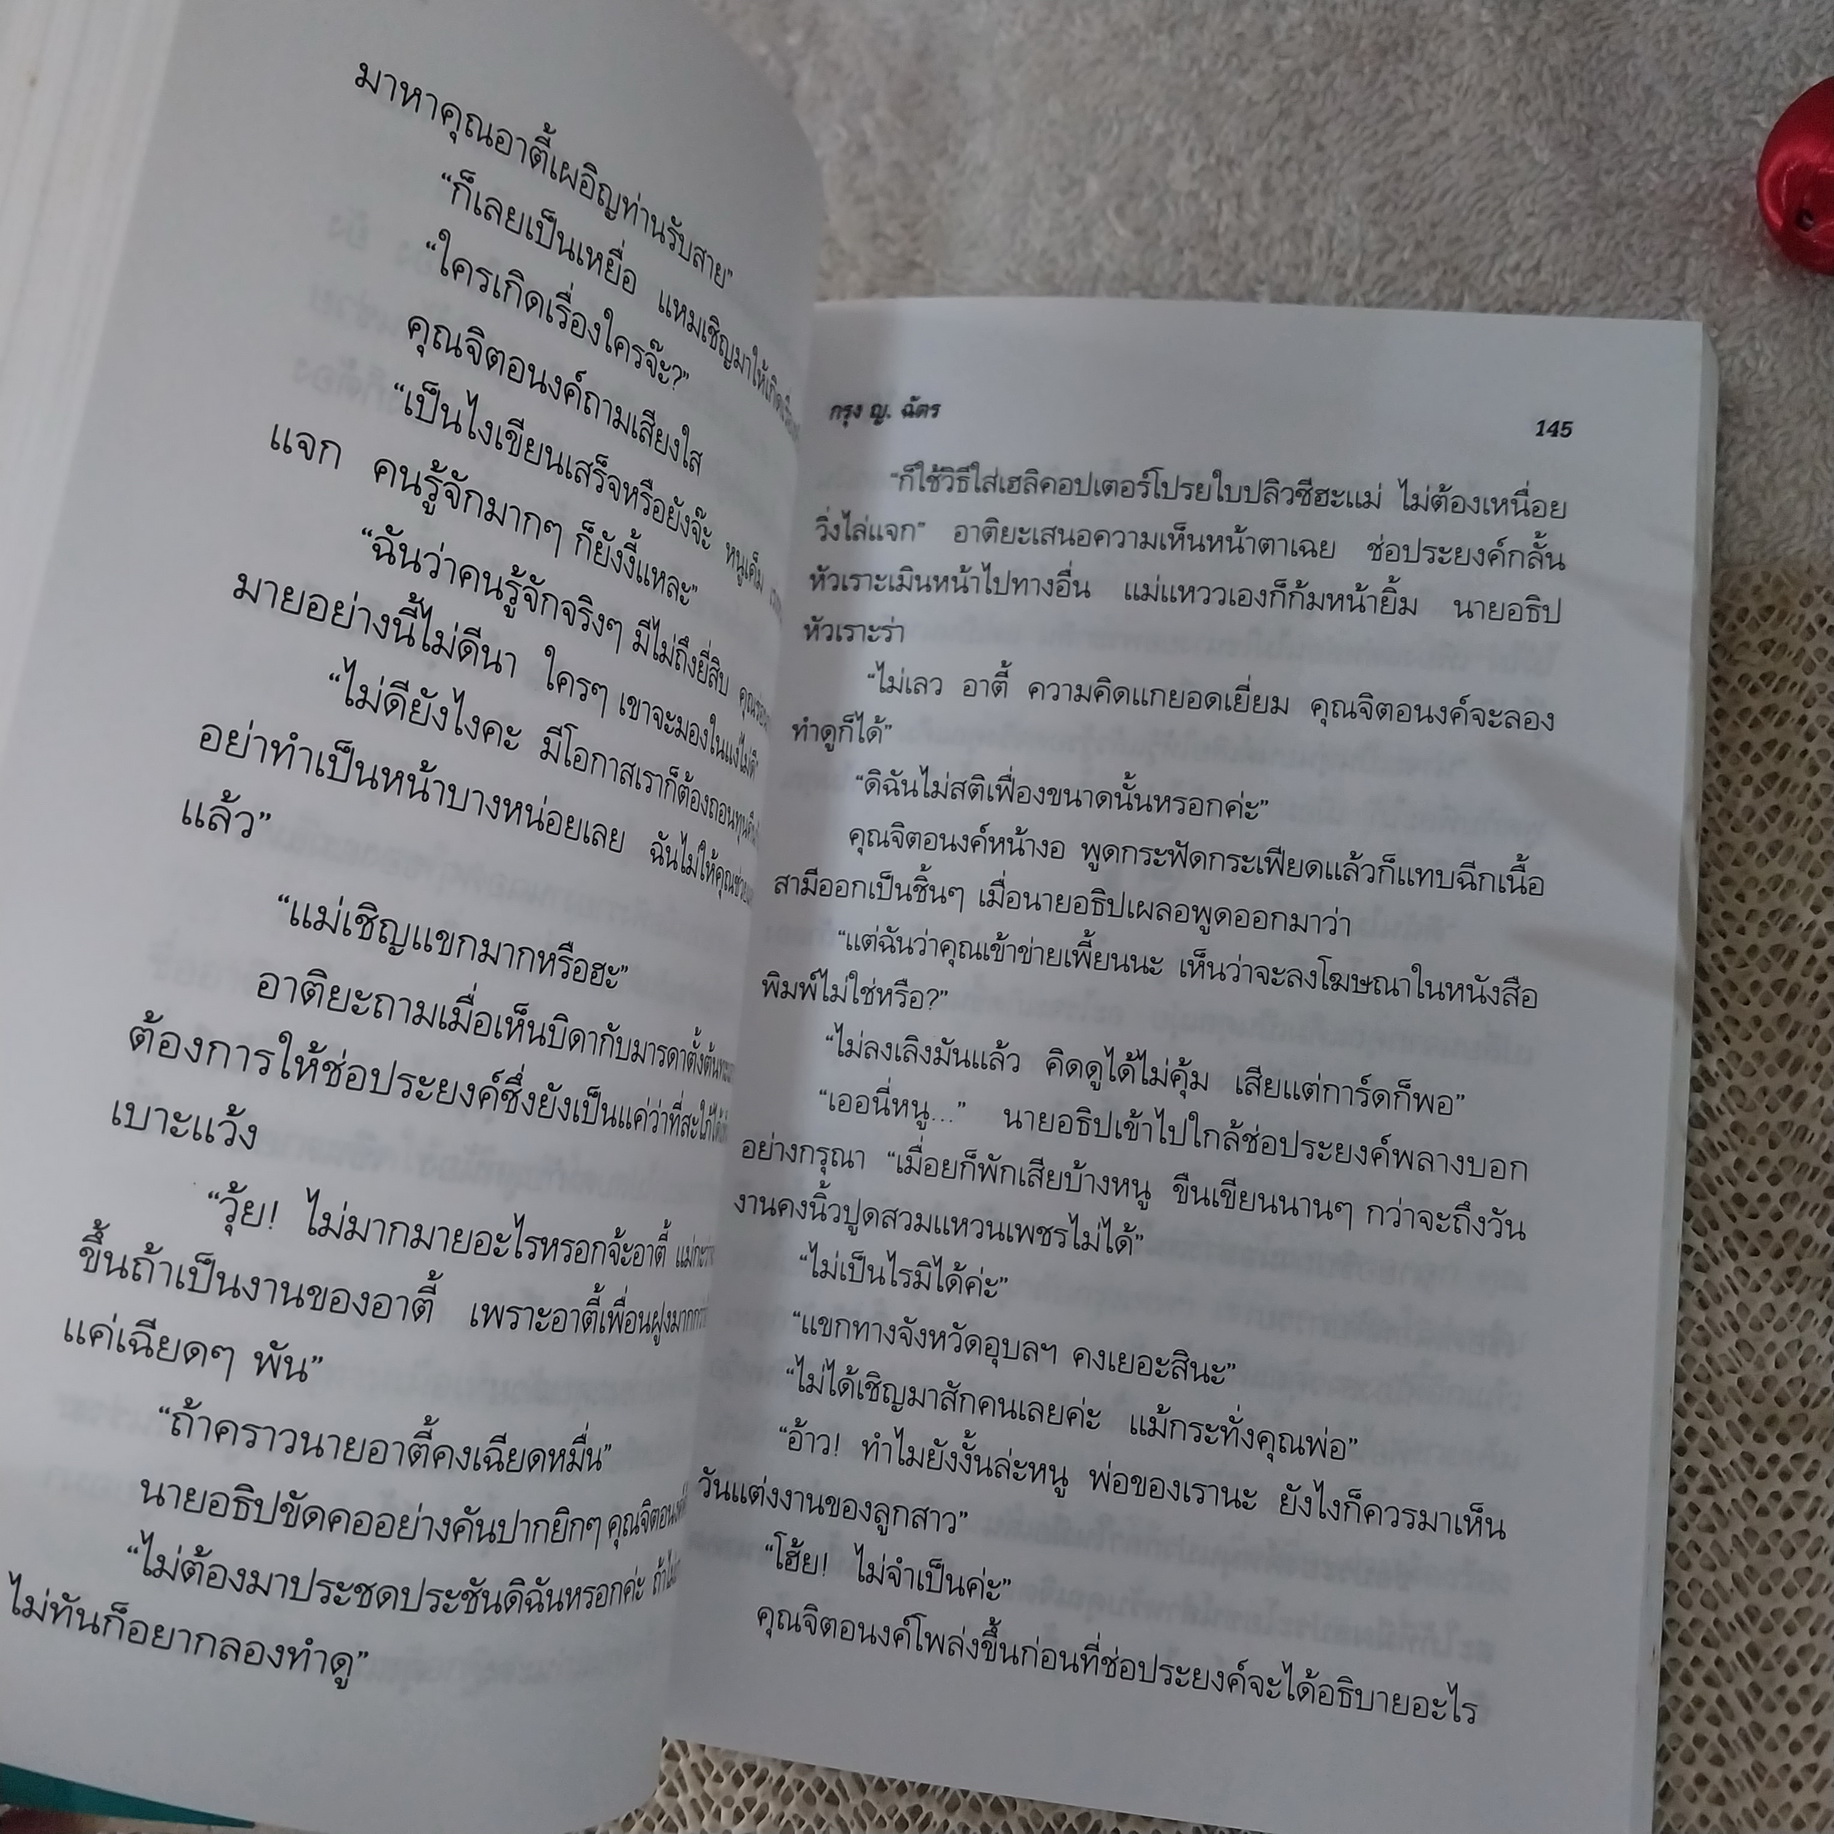 มาหาคุณอาตี้เผอิญท่านรับสาย”
“ก็เลยเป็นเหยื่อ แหมเชิญมาให้เกิด
“ใครเกิดเรื่องใครจ๊ะ?”
คุณจิตอนงค์ถามเสียงใส
“เป็นไงเขียนเสร็จหรือยังจ๊ะ หนูเค็ม
แจก คนรู้จักมากๆ ก็ยังงี้แหละ”
“ฉันว่าคนรู้จักจริงๆ มีไม่ถึงยี่สิบ
มายอย่างนี้ไม่ดีนา ใครๆ เขาจะมองในแง่ไม่ดี
“ไม่ดียังไงคะ มีโอกาสเราก็ต้องถอนทุน
อย่าทำเป็นหน้าบางหน่อยเลย ฉันไม่ให้คุณช่วย
แล้ว”
“แม่เชิญแขกมากหรือฮะ”
อาติยะถามเมื่อเห็นบิดากับมารดาตั้งต้น
ต้องการให้ช่อประยงค์ซึ่งยังเป็นแค่ว่าที่สะใภ้ได้
เบาะแว้ง
“วุ้ย! ไม่มากมายอะไรหรอกจ้ะอาตี้
ขึ้นถ้าเป็นงานของอาตี้ เพราะอาตี้เพื่อนฝูงมาก
แค่เฉียดๆ พัน”
“ถ้าคราวนายอาตี้คงเฉียดหมื่น”
นายอธิปขัดคออย่างคันปากยิกๆ
“ไม่ต้องมาประชดประชันดิฉันหรอกค่ะ
ไม่ทันก็อยากลองทำดู”
กรุง ญ. ฉัตร 145
“ก็ใช้วิธีใส่เฮลิคอปเตอร์โปรยใบปลิวซีฮะแม่ ไม่ต้องเหนื่อย
วิ่งไล่แจก” อาติยะเสนอความเห็นหน้าตาเฉย ช่อประยงค์กลั้น
หัวเราะเมินหน้าไปทางอื่น แม่แหววเองก็ก้มหน้ายิ้ม นายอธิป
หัวเราะร่า
“ไม่เลว อาตี้ ความคิดแกยอดเยี่ยม คุณจิตอนงค์จะลอง
ทำดูก็ได้”
“ดิฉันไม่สติเฟื่องขนาดนั้นหรอกค่ะ”
คุณจิตอนงค์หน้างอ พูดกระฟัดกระเฟียดแล้วก็แทบฉีกเนื้อ
สามีออกเป็นชิ้นๆ เมื่อนายอธิปเผลอพูดออกมาว่า
“แต่ฉันว่าคุณเข้าข่ายเพี้ยนนะ เห็นว่าจะลงโฆษณาในหนังสือ
พิมพ์ไม่ใช่หรือ?”
“ไม่ลงเลิงมันแล้ว คิดดูได้ไม่คุ้ม เสียแต่การ์ดก็พอ”
“เออนี่หนู...” นายอธิปเข้าไปใกล้ช่อประยงค์พลางบอก
อย่างกรุณา “เมื่อยก็พักเสียบ้างหนู ขืนเขียนนานๆ กว่าจะถึงวัน
งานคงนิ้วปูดสวมแหวนเพชรไม่ได้”
“ไม่เป็นไรมิได้ค่ะ”
“แขกทางจังหวัดอุบลฯ คงเยอะสินะ”
“ไม่ได้เชิญมาสักคนเลยค่ะ แม้กระทั่งคุณพ่อ”
“อ้าว! ทำไมยังงั้นล่ะหนู พ่อของเรานะ ยังไงก็ควรมาเห็น
วันแต่งงานของลูกสาว”
“โฮ้ย! ไม่จำเป็นค่ะ”
คุณจิตอนงค์โพล่งขึ้นก่อนที่ช่อประยงค์จะได้อธิบายอะไร